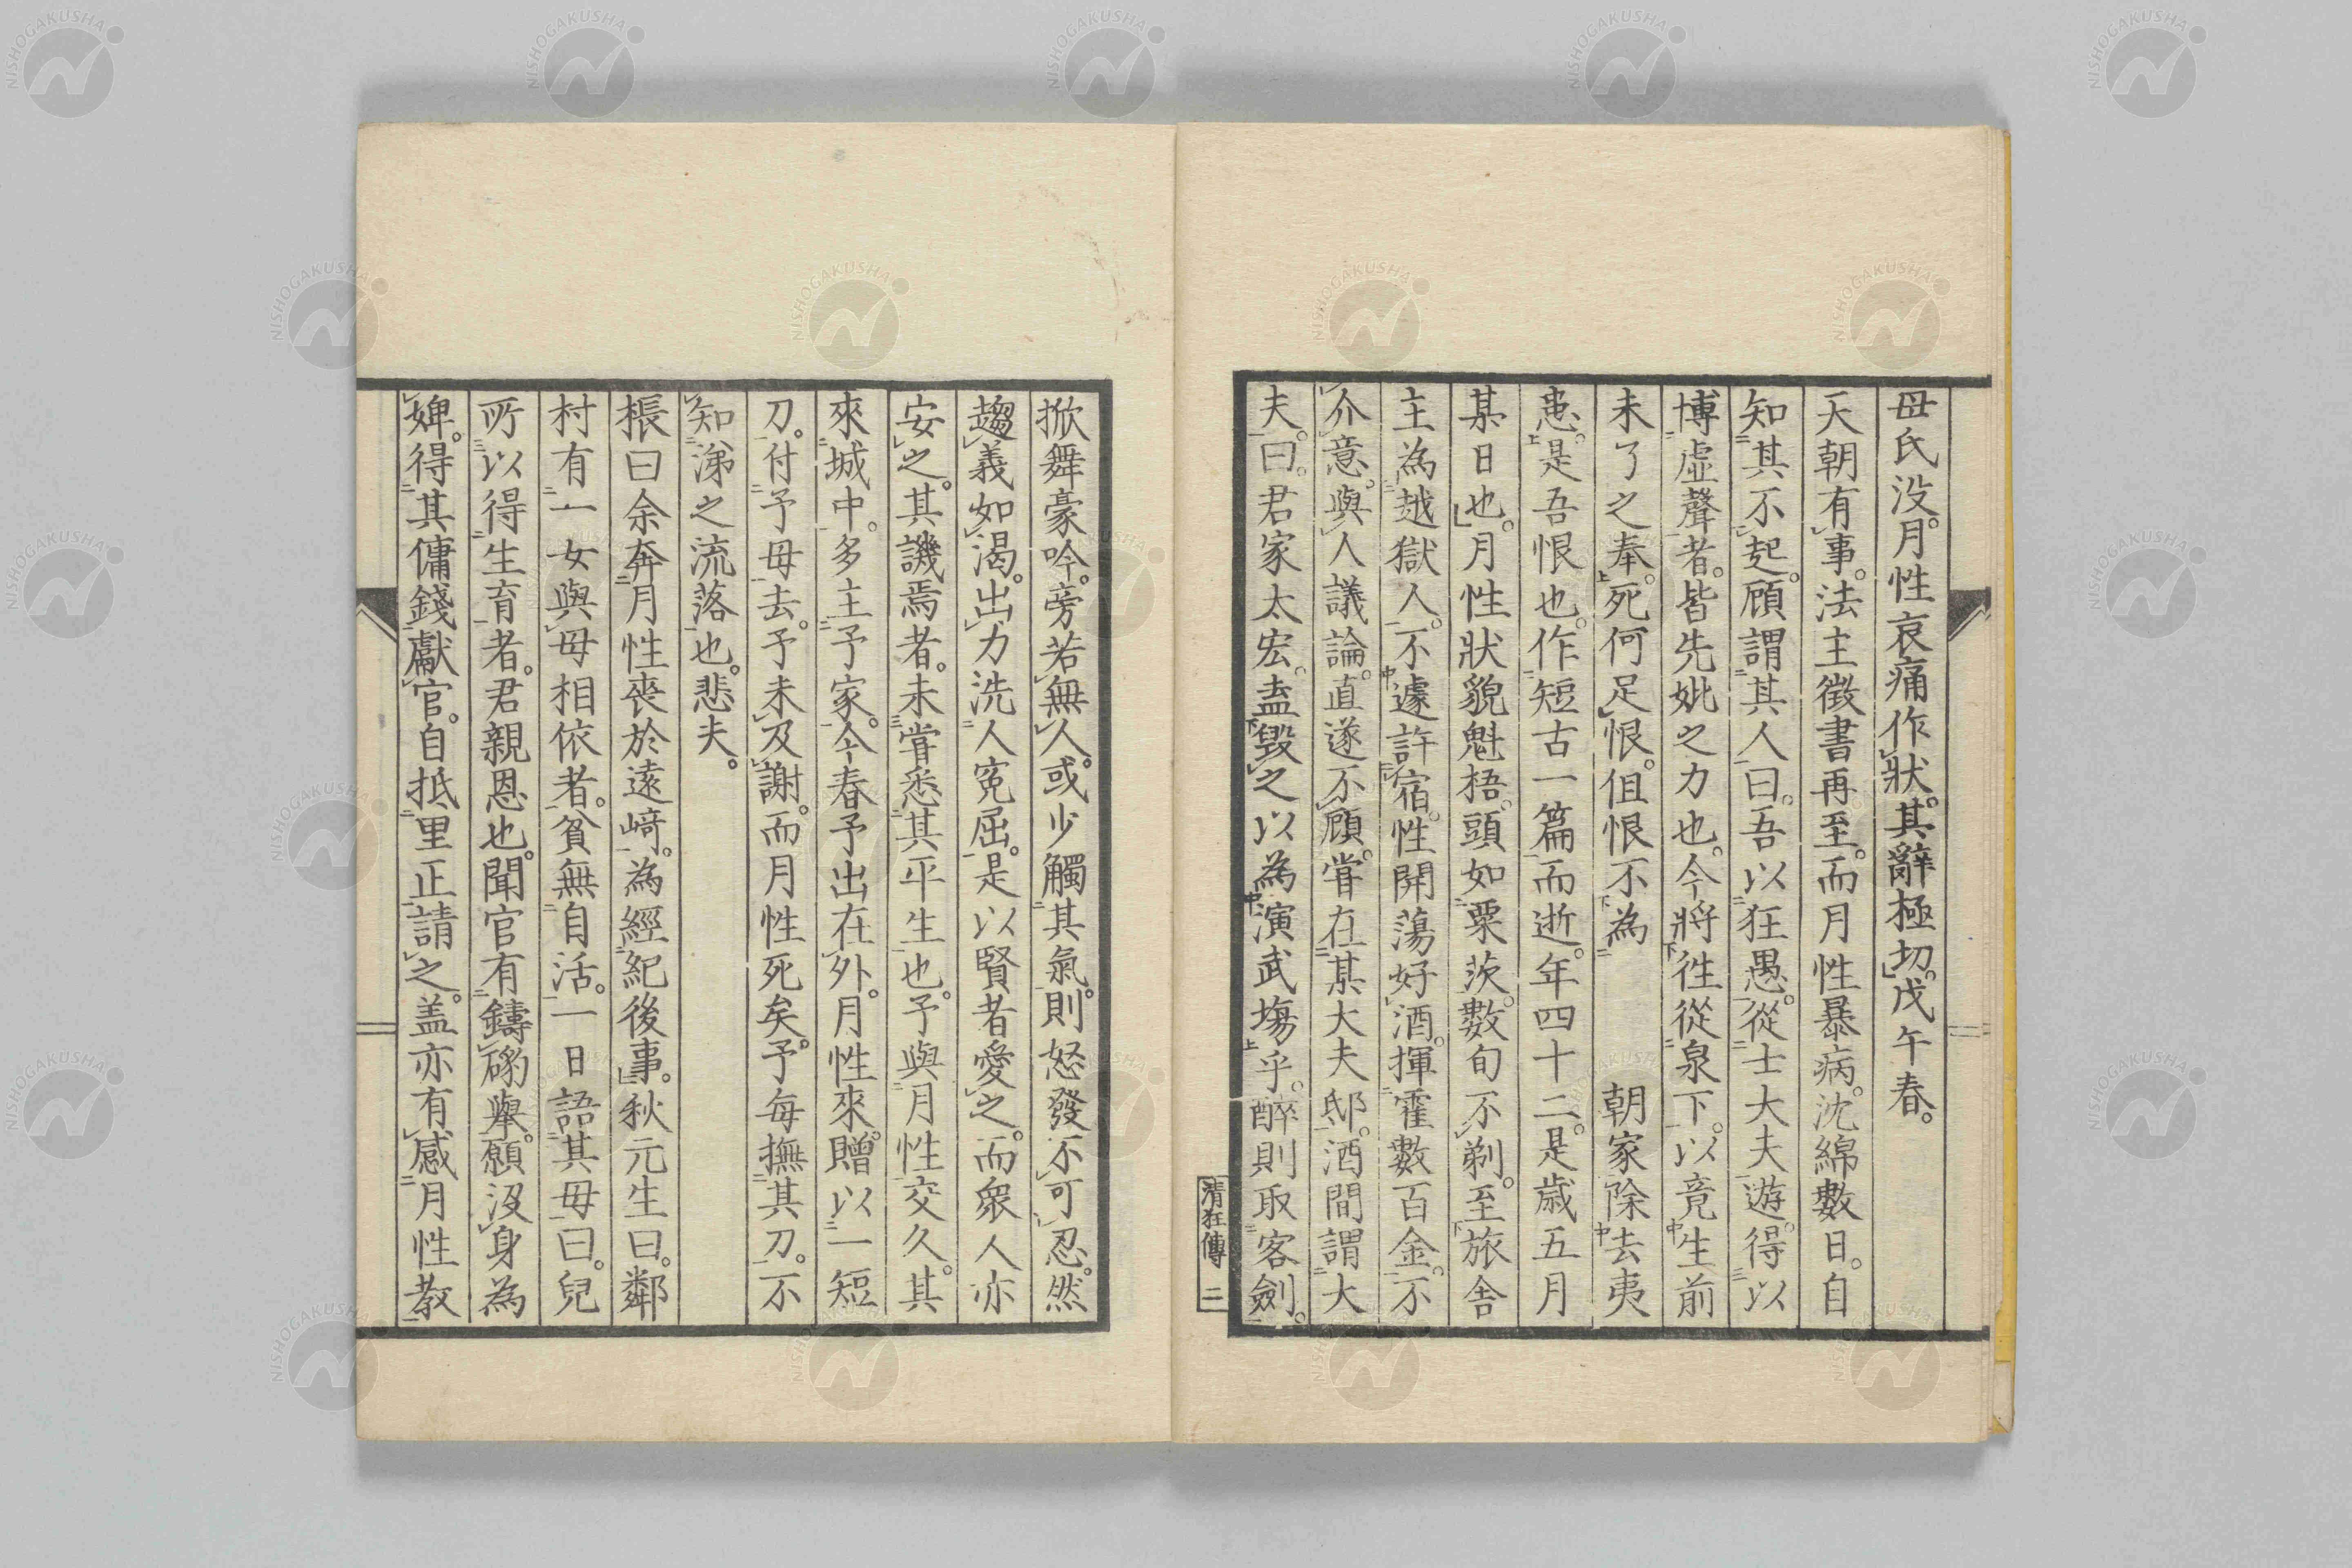 母氏没。月性哀痛作狀。其辭極切。戊午春。
天朝有事。法主徵書再至。而月性暴病。沈綿數日。自
知其不起。顧謂其人曰。吾以狂愚。從士大夫遊。得以
博虛聲者。皆先妣之力也。今將徃從泉下。以竟生前
未了之奉。死何足恨。但恨不為　　朝家除去夷
患。是吾恨也。作短古一篇而逝。年四十二。是歲五月
某日也。月性狀貌魁梧。頭如栗茨。數旬不剃。至旅舍
主為越獄人。不遽許宿。性開蕩好酒。揮霍數百金。不
介意。與人議論。直遂不顧。嘗在某大夫邸。酒間謂大
夫。曰。君家太宏。盍毀之以為演武塲乎。醉則取客劍。
清狂傳 二
掀舞豪吟。旁若無人。或少觸其氣。則怒發不可忍。然
趨義如渴。出力洗人寃屈。是以賢者愛之。而衆人亦
安之。其譏焉者。未嘗悉其平生也。予與月性交久。其
來城中。多主予家。今春予出在外。月性來。贈以一短
刀。付予母去。予未及謝。而月性死矣。予每撫其刀。不
知涕之流落也。悲夫。
棖曰余奔月性喪於遠﨑。為經紀後事。秋元生曰。鄰
村有一女與母相依者。貧無自活。一日語其母曰。兒
所以得生育者。君親恩也。聞官有鑄礮擧。願沒身為
婢。得其傭錢獻官。自抵里正請之。盖亦有感月性教
NISHOGAKUSHA